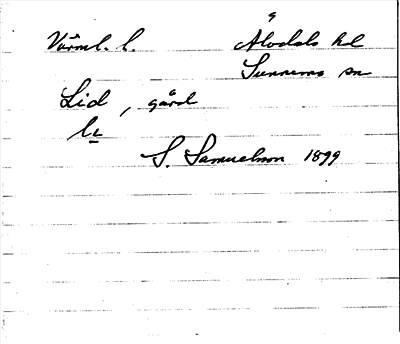 Värml. l. Älvdals hd
Sunnemo sn
Lid, gård
le
S. Samuelson 1899